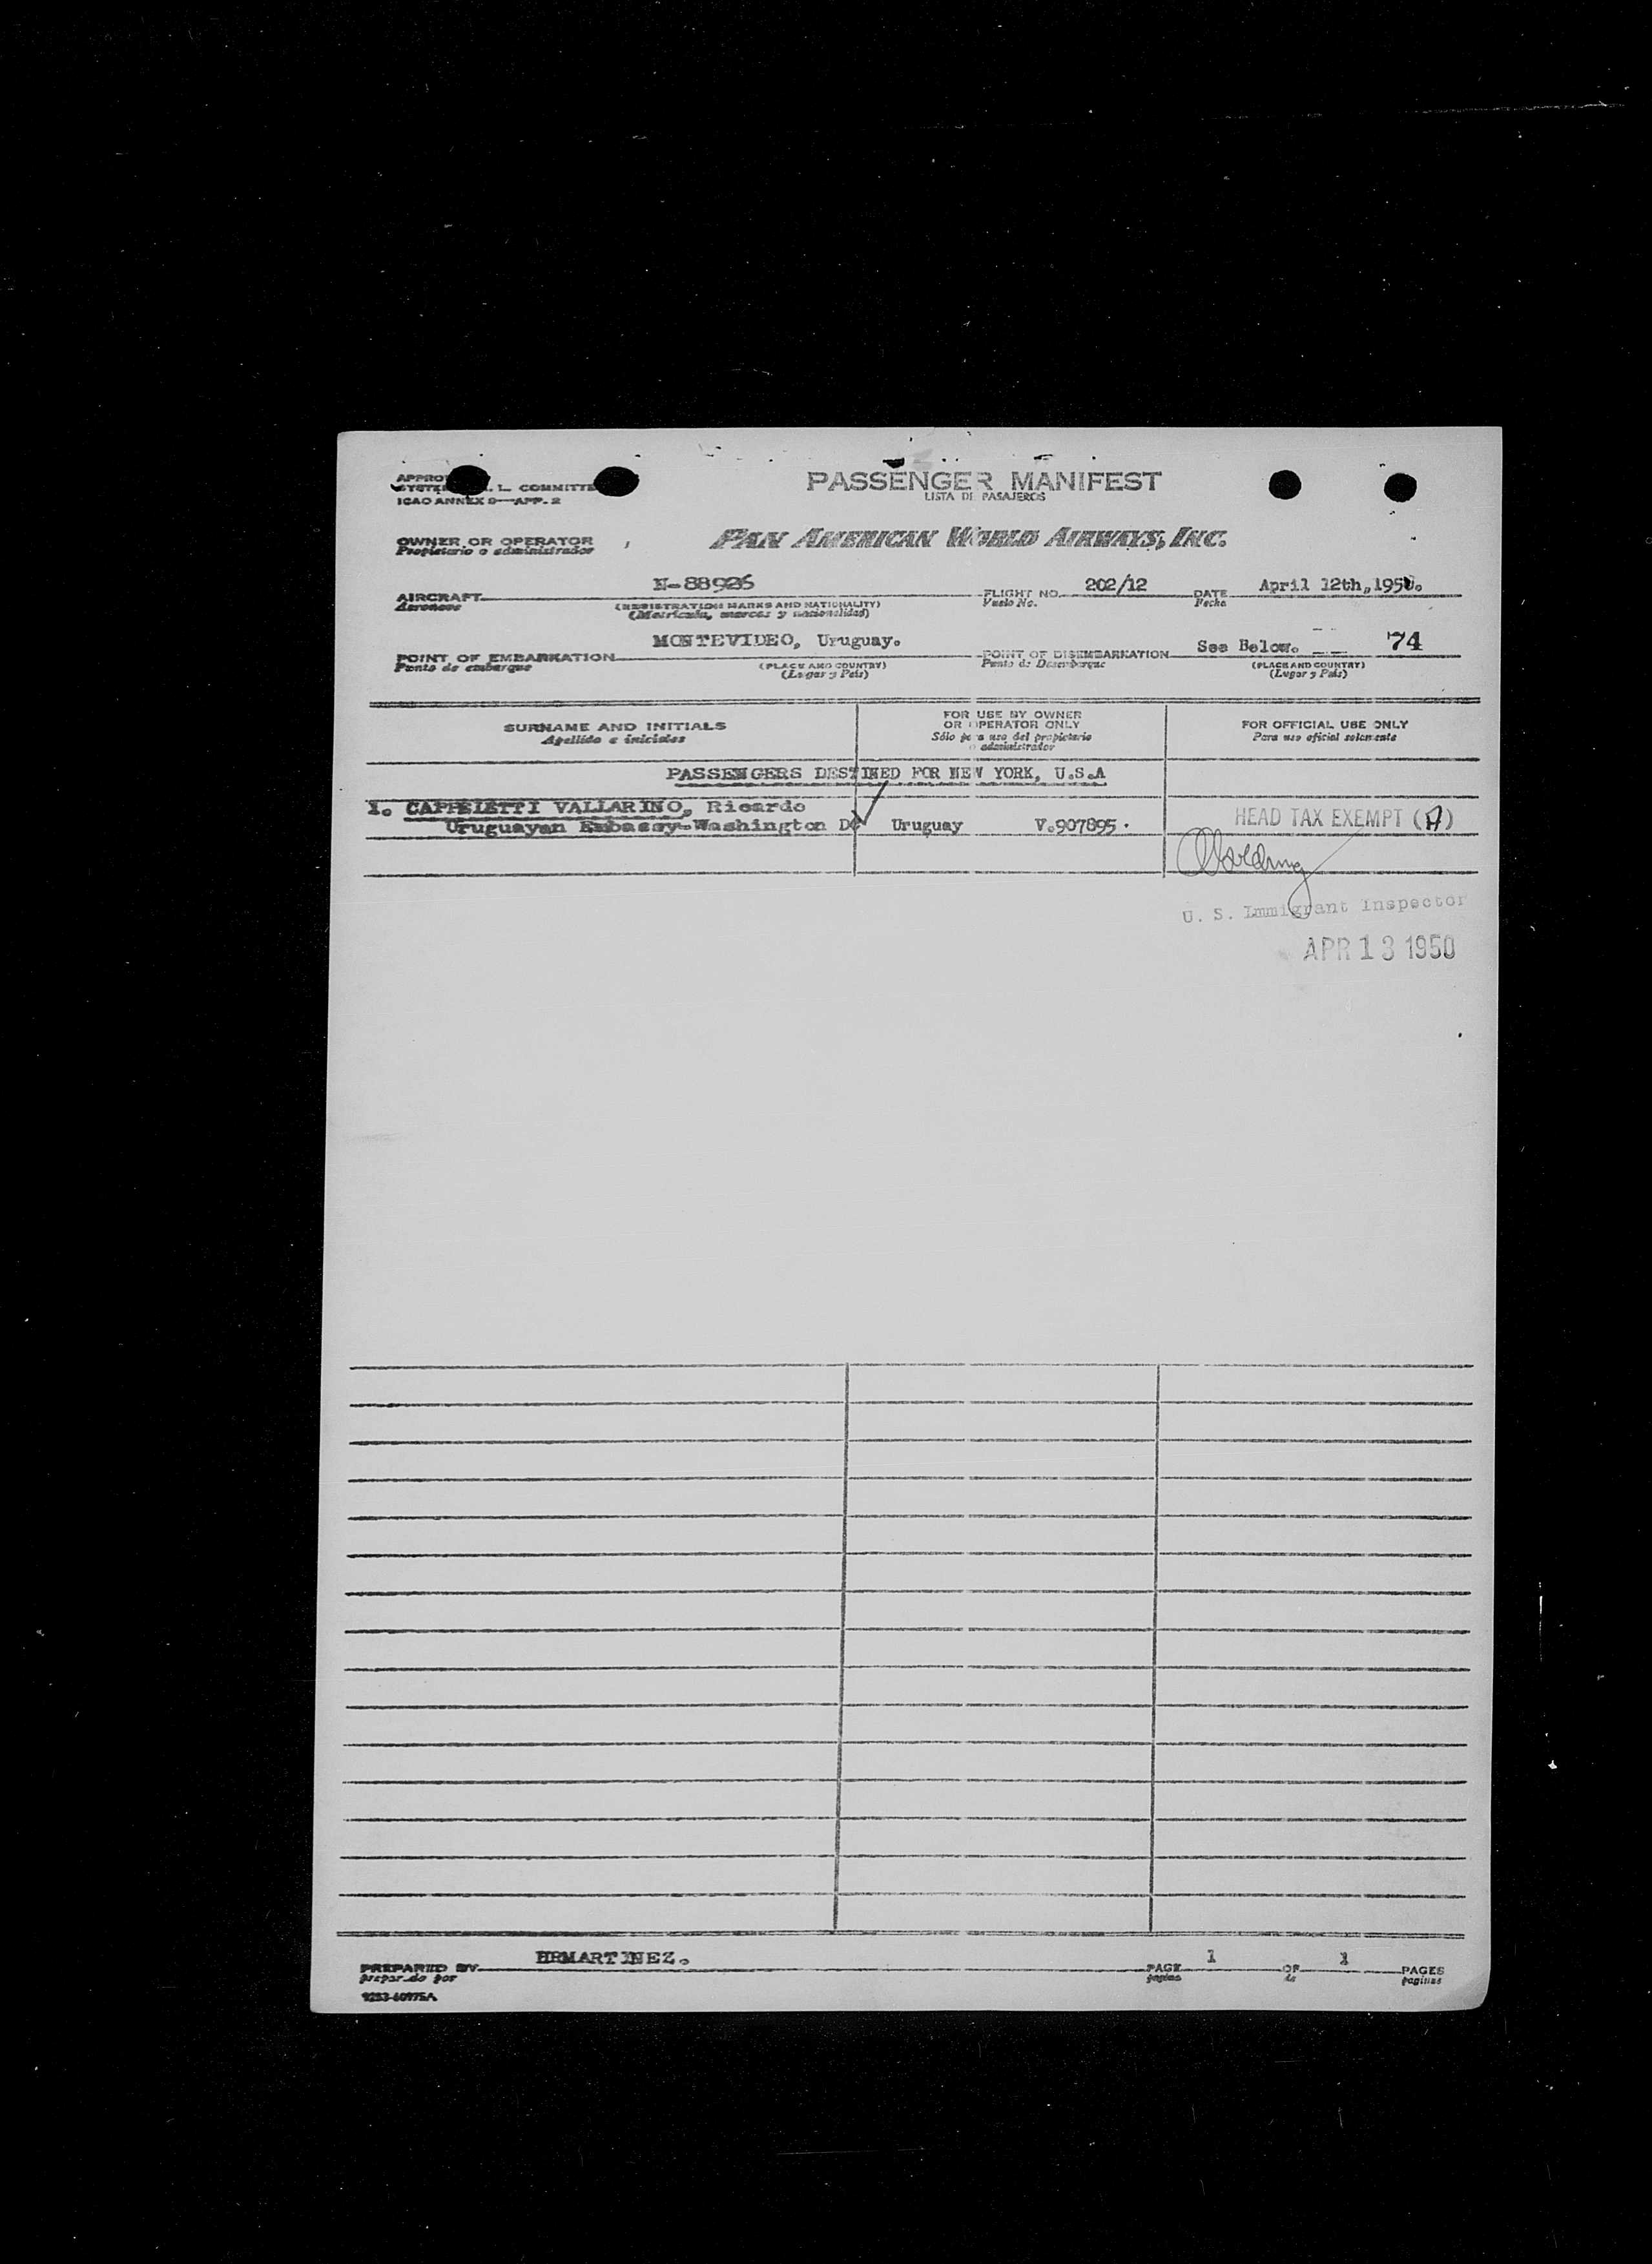 PASSENGER MANIFEST
LISTA DE PASAJEROS
L. COMMITTE
ICAO ANNEX 9—APP. 2
OWNER OR OPERATOR
Propietario o administrador
PAN AMERICAN WORLD AIRWAYS, INC.
AIRCRAFT N-88926 FLIGHT NO. 202/12 DATE April 12th, 1950.
Aeronave (REGISTRATION MARKS AND NATIONALITY) Vuelo No. Fecha
(Matrícula, marcas y nacionalidad)
POINT OF EMBARKATION MONTEVIDEO, Uruguay. POINT OF DISEMBARKATION See Below. 74
Punto de embarque (PLACE AND COUNTRY) Punto de Desembarque (PLACE AND COUNTRY)
(Lugar y País) (Lugar y País)
SURNAME AND INITIALS
Apellido e iniciales
FOR USE BY OWNER
OR OPERATOR ONLY
Sólo para uso del propietario
o administrador
FOR OFFICIAL USE ONLY
Para uso oficial solamente
PASSENGERS DESTINED FOR NEW YORK, U.S.A
1. CAPPELETTI VALLARINO, Ricardo
Uruguayan Embassy-Washington DC Uruguay V.907895.
HEAD TAX EXEMPT (A)
U. S. Immigrant Inspector
APR 13 1950
PREPARED BY HRMARTINEZ. PAGE 1 OF 1 PAGES
preparado por pagina de paginas
9253-60975A